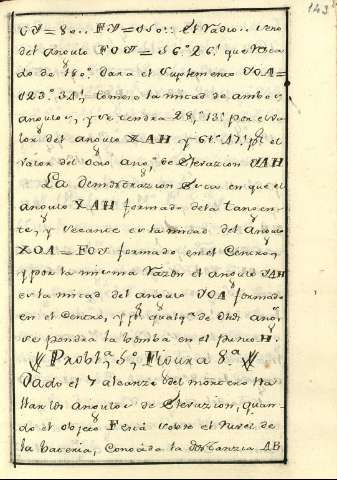 143
del angulo FOY = 56° 26' que
do de 180° dara el Suplemento YOA =
123° 34', tomese la mitad de ambos
angulos, y se tendra 28° 13' por el va
lor del angulo XAH y 61° 47' pr el
valor del otro angº de Elevazion YAH
La demostrazion Saca en que el
angulo XAH formado de la tangen
te, y Secante es la mitad del Angulo
XOA = FOY formado en el Centro,
y por la misma Razon el angulo YAH
es la mitad del angulo YOA formado
en el Centro, y pr qualqª de dhos angs
se pondra la bomba en el punto H.
Probl.ª 5º, Figura 8.ª
Dado el Y alcanze del mortero Ha
llar los angulos de Elevazion, quan
do el objeto Está sobre el nivel de
la bateria, Conocida la distanzia AB